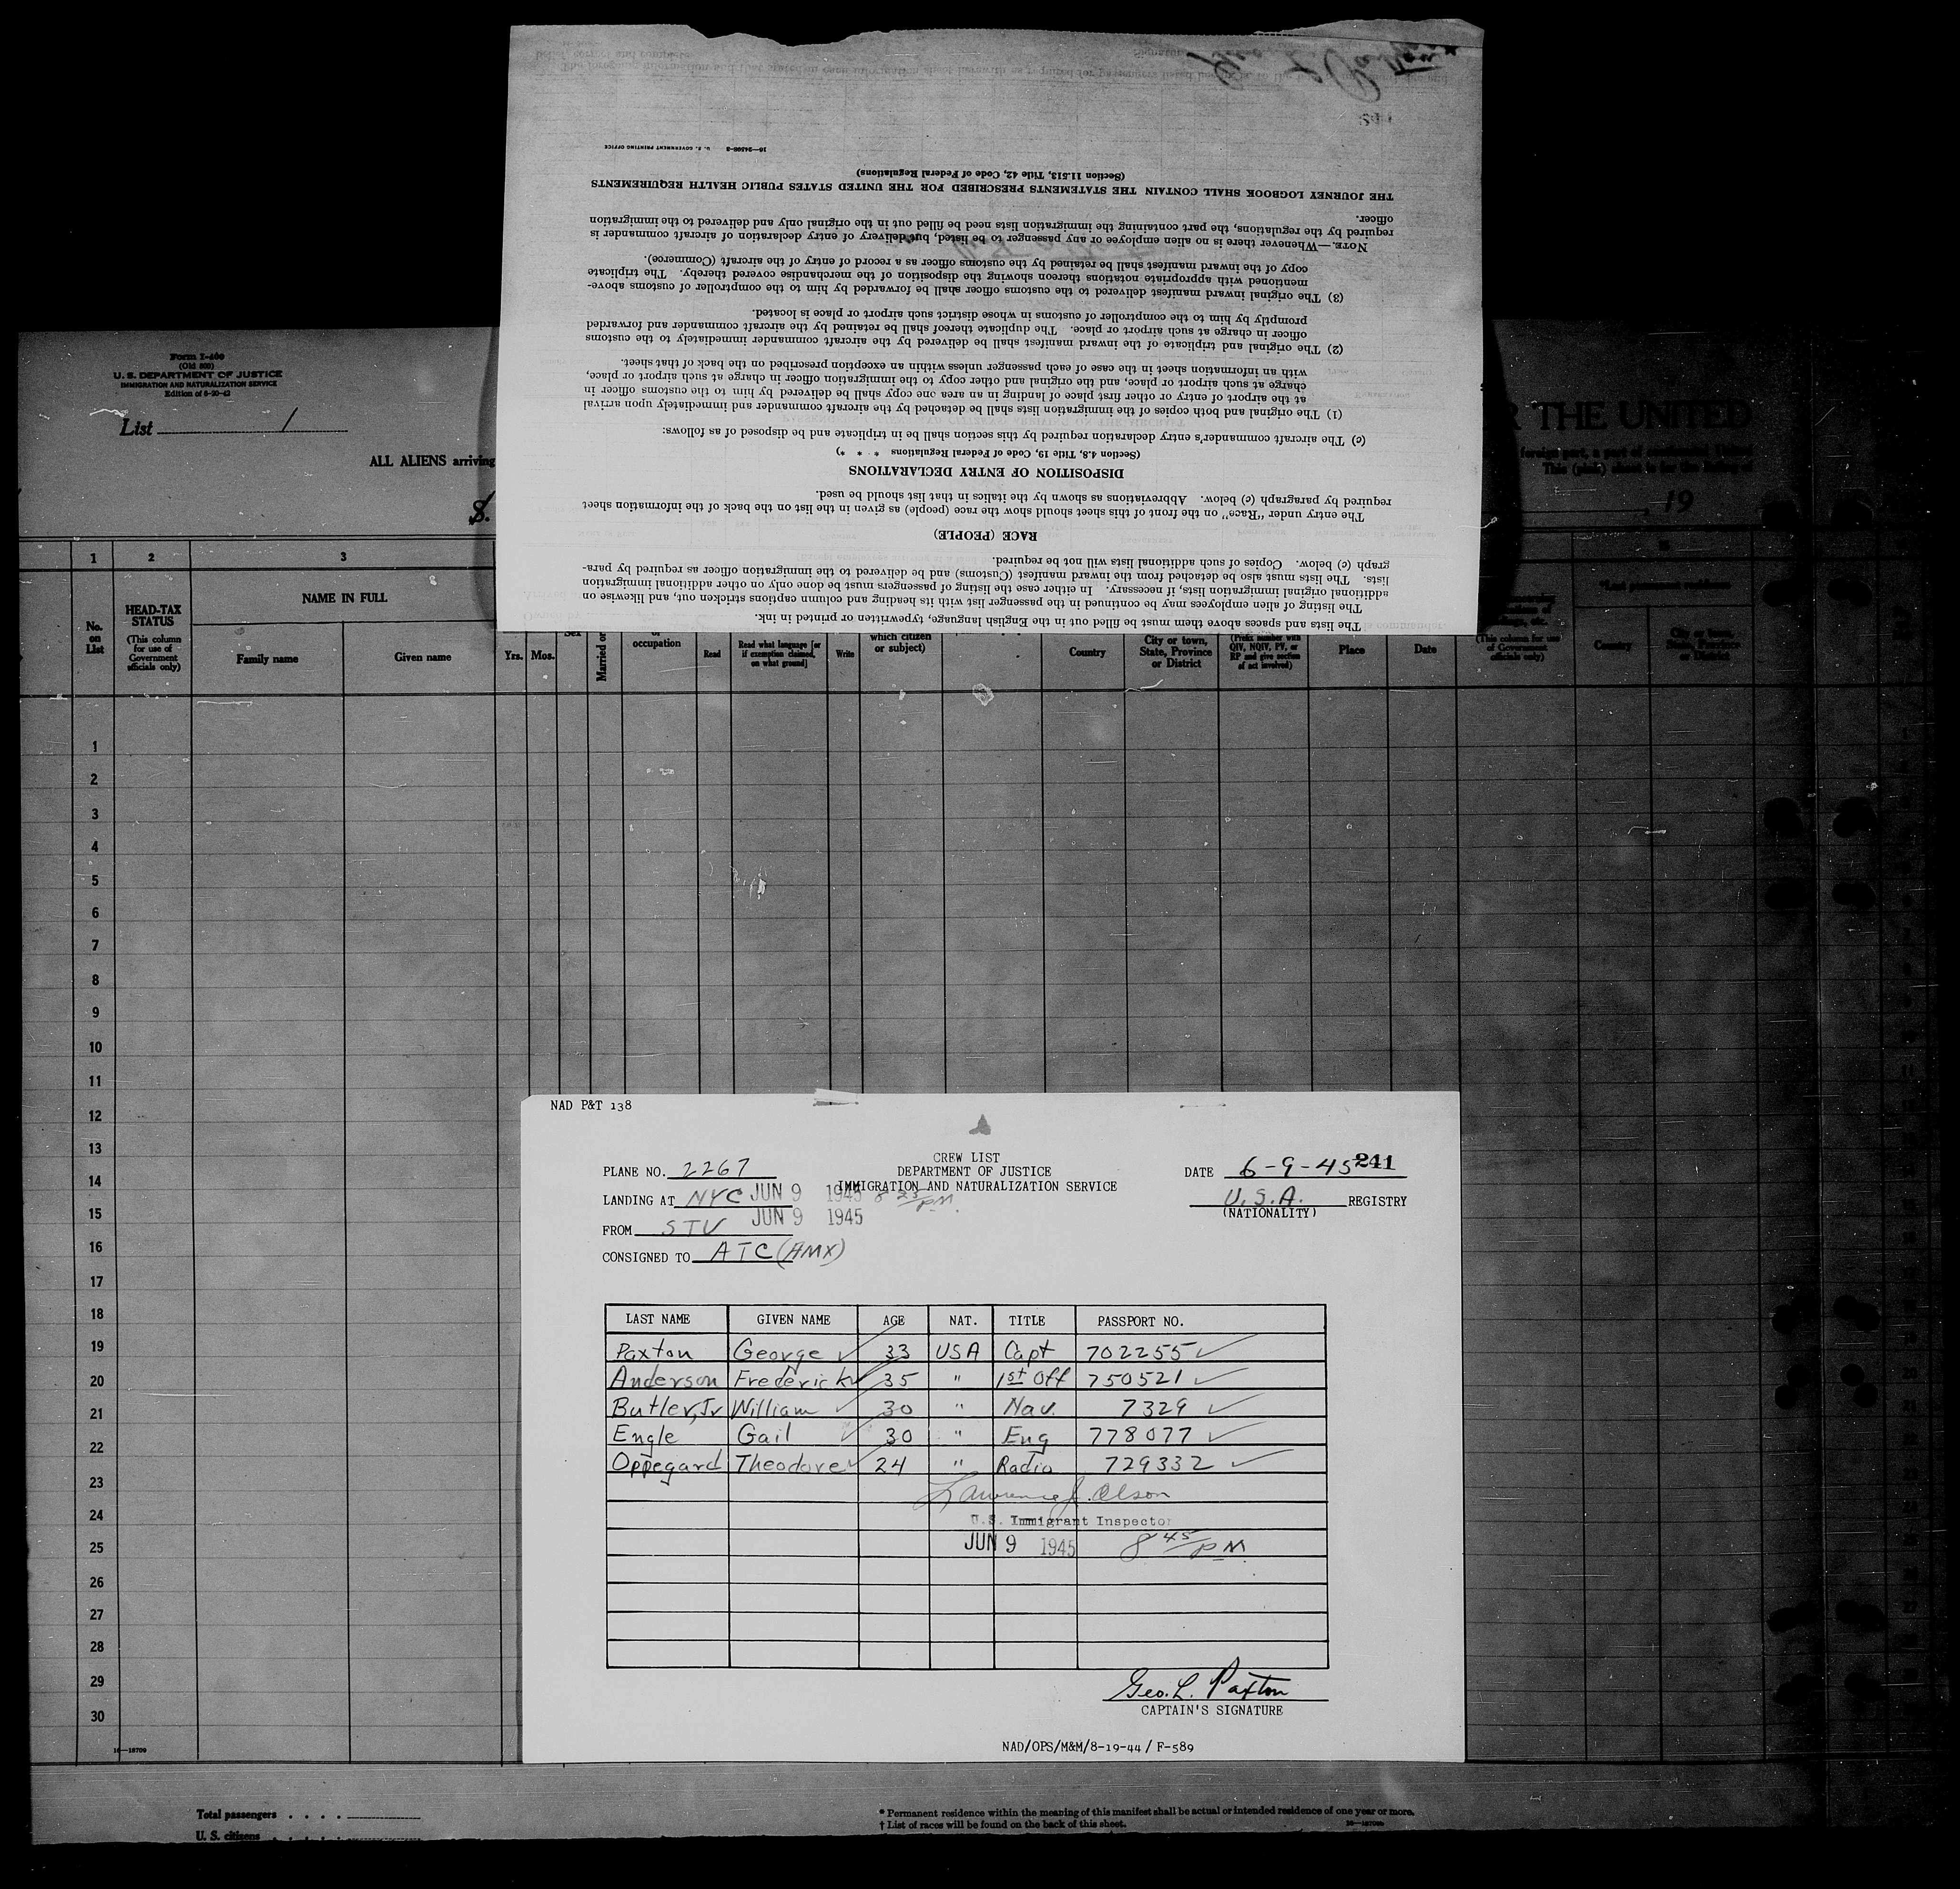 Form I-400
(Old 500)
U. S. DEPARTMENT OF JUSTICE
IMMIGRATION AND NATURALIZATION SERVICE
Edition of 6-30-43
List /
ALL ALIENS arriving
S.
R THE UNITED
foreign port, a port of continental United
This (pink) sheet is for the listing of
, 19
1 2 3
No. on List
HEAD-TAX STATUS
(This column for use of Government officials only)
NAME IN FULL
Family name Given name
Yrs. Mos.
Sex
Married or
occupation
Read
Read what language [or if exemption claimed, on what ground]
Write
which citizen or subject)
Country
City or town, State, Province or District
(Prefix number with QIV, NQIV, PV, or RP and give section of act involved)
Place
Date
(This column for use of Government officials only)
*Last permanent residence
Country
City or town, State, Province or District
1
2
3
4
5
6
7
8
9
10
11
12
13
14
15
16
17
18
19
20
21
22
23
24
25
26
27
28
29
30
16—18709
Total passengers . . . .
U. S. citizens . . . .
* Permanent residence within the meaning of this manifest shall be actual or intended residence of one year or more.
† List of races will be found on the back of this sheet.
The lists and spaces above them must be filled out in the English language, typewritten or printed in ink.
The listing of alien employees may be continued in the passenger list with its heading and column captions stricken out, and likewise on
additional original immigration lists, if necessary. In either case the listing of passengers must be done only on other additional immigration
lists. The lists must also be detached from the inward manifest (Customs) and be delivered to the immigration officer as required by para-
graph (c) below. Copies of such additional lists will not be required.
RACE (PEOPLE)
The entry under "Race" on the front of this sheet should show the race (people) as given in the list on the back of the information sheet
required by paragraph (c) below. Abbreviations as shown by the italics in that list should be used.
DISPOSITION OF ENTRY DECLARATIONS
(Section 4.8, Title 19, Code of Federal Regulations * * *)
(c) The aircraft commander's entry declaration required by this section shall be in triplicate and be disposed of as follows:
(1) The original and both copies of the immigration lists shall be detached by the aircraft commander and immediately upon arrival
at the airport of entry or other first place of landing in an area one copy shall be delivered by him to the customs officer in
charge at such airport or place, and the original and other copy to the immigration officer in charge at such airport or place,
with an information sheet in the case of each passenger unless within an exception prescribed on the back of that sheet.
(2) The original and triplicate of the inward manifest shall be delivered by the aircraft commander immediately to the customs
officer in charge at such airport or place. The duplicate thereof shall be retained by the aircraft commander and forwarded
promptly by him to the comptroller of customs in whose district such airport or place is located.
(3) The original inward manifest delivered to the customs officer shall be forwarded by him to the comptroller of customs above-
mentioned with appropriate notations thereon showing the disposition of the merchandise covered thereby. The triplicate
copy of the inward manifest shall be retained by the customs officer as a record of entry of the aircraft (Commerce).
NOTE.—Whenever there is no alien employee or any passenger to be listed, but delivery of entry declaration of aircraft commander is
required by the regulations, the part containing the immigration lists need be filled out in the original only and delivered to the immigration
officer.
THE JOURNEY LOGBOOK SHALL CONTAIN THE STATEMENTS PRESCRIBED FOR THE UNITED STATES PUBLIC HEALTH REQUIREMENTS
(Section 11.513, Title 42, Code of Federal Regulations)
16—24598-2 U. S. GOVERNMENT PRINTING OFFICE
NAD P&T 138
CREW LIST
DEPARTMENT OF JUSTICE
IMMIGRATION AND NATURALIZATION SERVICE
PLANE NO. 2267
DATE 6-9-45 241
LANDING AT NYC JUN 9 1945 8 25 PM
U.S.A. REGISTRY
(NATIONALITY)
FROM STV JUN 9 1945
CONSIGNED TO ATC (AMX)
LAST NAME GIVEN NAME AGE NAT. TITLE PASSPORT NO.
Paxton George 33 USA Capt 702255
Anderson Frederick 35 " 1st Off 750521
Butler, Jr William 30 " Nav. 7329
Engle Gail 30 " Eng 778077
Oppegard Theodore 24 " Radio 729332
Lawrence J. Olson
U.S. Immigrant Inspector
JUN 9 1945 8 45 PM
Geo. L. Paxton
CAPTAIN'S SIGNATURE
NAD/OPS/M&M/8-19-44 / F-589